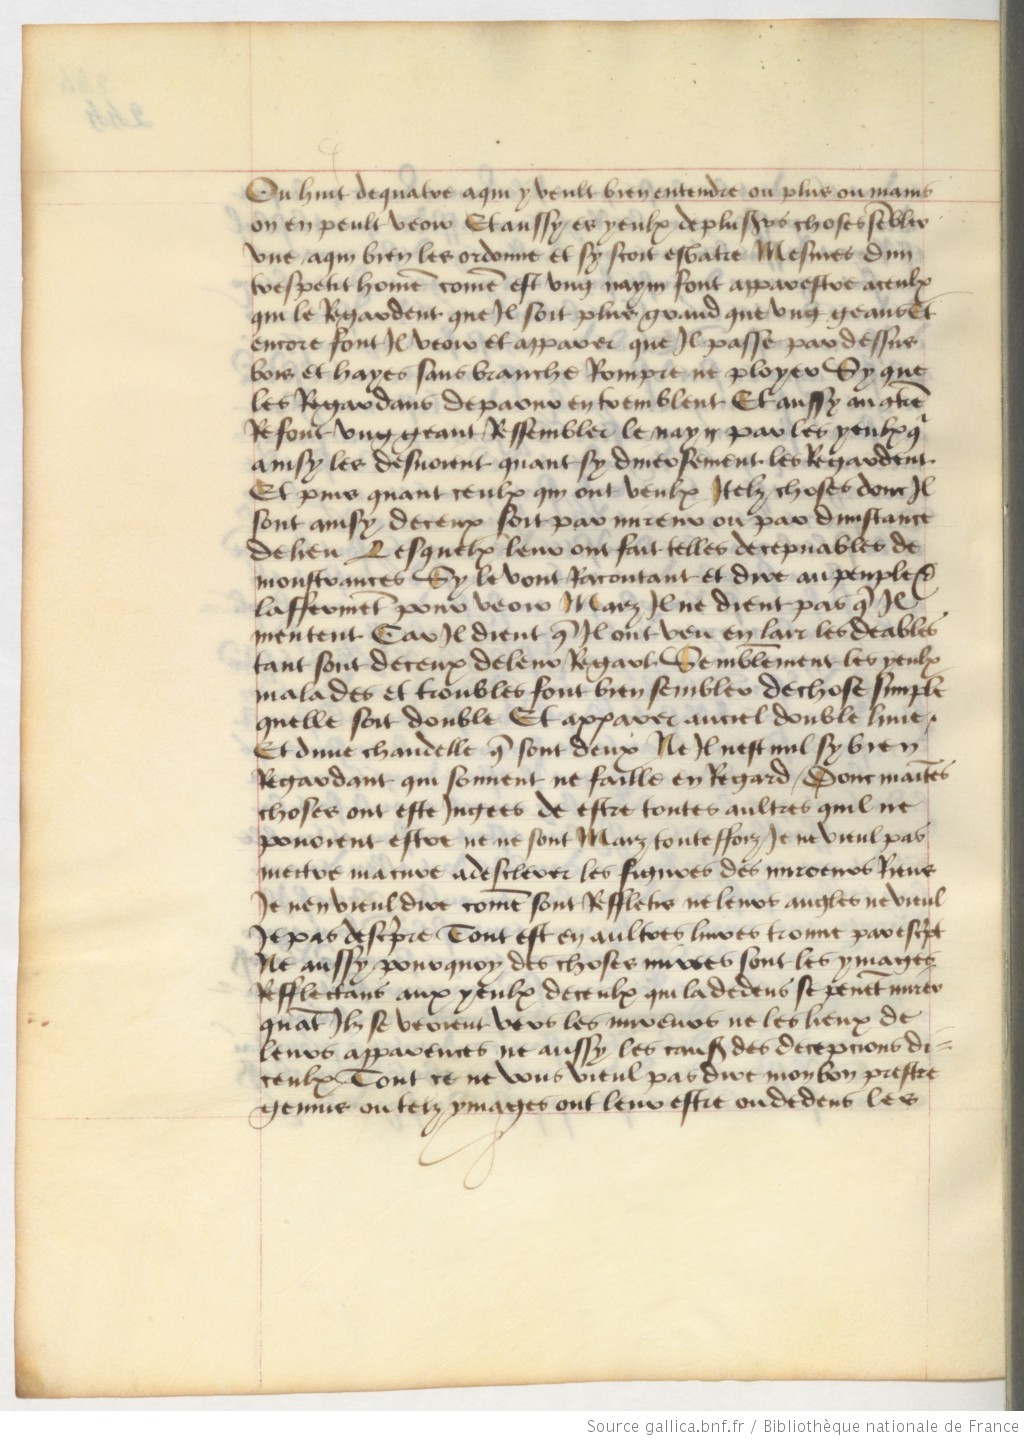 Ou huit de quatre a qui y veult bien entendre ou plus ou mains
on en peult veoir Et aussy es yeulx de plusrs choses sembler
vne a qui bien les ordonne et sy scoit esbatre Mesmes dun
trespetit homē comē est vng nayn font apparestre a ceulx
qui le Regardent que Il soit plus grand que vng geant Et
encore font Il veoir et apparer que Il passe par dessus
bois et hayes sans branche Rompre ne ployer Sy que
les Regardans de paour en tremblent Et aussy au ɔtrē
Refont vng geant Ressembler le nayn par les yeulx q̄
ainsy les desuoient quant sy diuersement les Regardent
Et puis quant ceulx qui ont veulx Itelz choses donc Il
sont ainsy deceux soit par mireur ou par dinstance
de lieu Lesquelx leur ont fait telles decepuables de
monstrances Sy le vont Racontant et dire au peuple &
laffermēt pour veoir Maiz Il ne dient pas q̄ Il
mentent Car Il dient q̄ Il ont veu en lair les deables
tant sont deceux de leur Regart Semblēment les yeulx
malades et troubles font bien sembler de chose simple
quelle soit double Et apparer au ciel double lune
Et dune chandelle q̄ sont deux Ne Il nest nul sy bien
Regardant qui souuent ne faille en Regard / Donc maītes
choses ont este Jugees de estre toutes aultres quil ne
pouoient estre ne ne sont Maiz touteffoiz Je ne vieul pas
mettre ma cure a desclerer les figures des miroeurs Riens
Je nen vieul dire comē sont Reffletis ne leurs angles ne vieul
Je pas descp̄re Tout est en aultres liures trouue par escp̄t
Ne aussy pourquoy des choses mirees sont les ymages
Refflectans aux yeulx de ceulx qui la dedens se peuēt mirer
quāt Ilz se virent vers les mireurs ne les lieux de
leurs apparences ne aussy les caus des decepcions di=
ceulx Tout ce ne vous vieul pas dire mon bon prestre
genius ou telz ymages ont leur estre ou dedens les
Source gallica.bnf.fr / Bibliothèque nationale de France